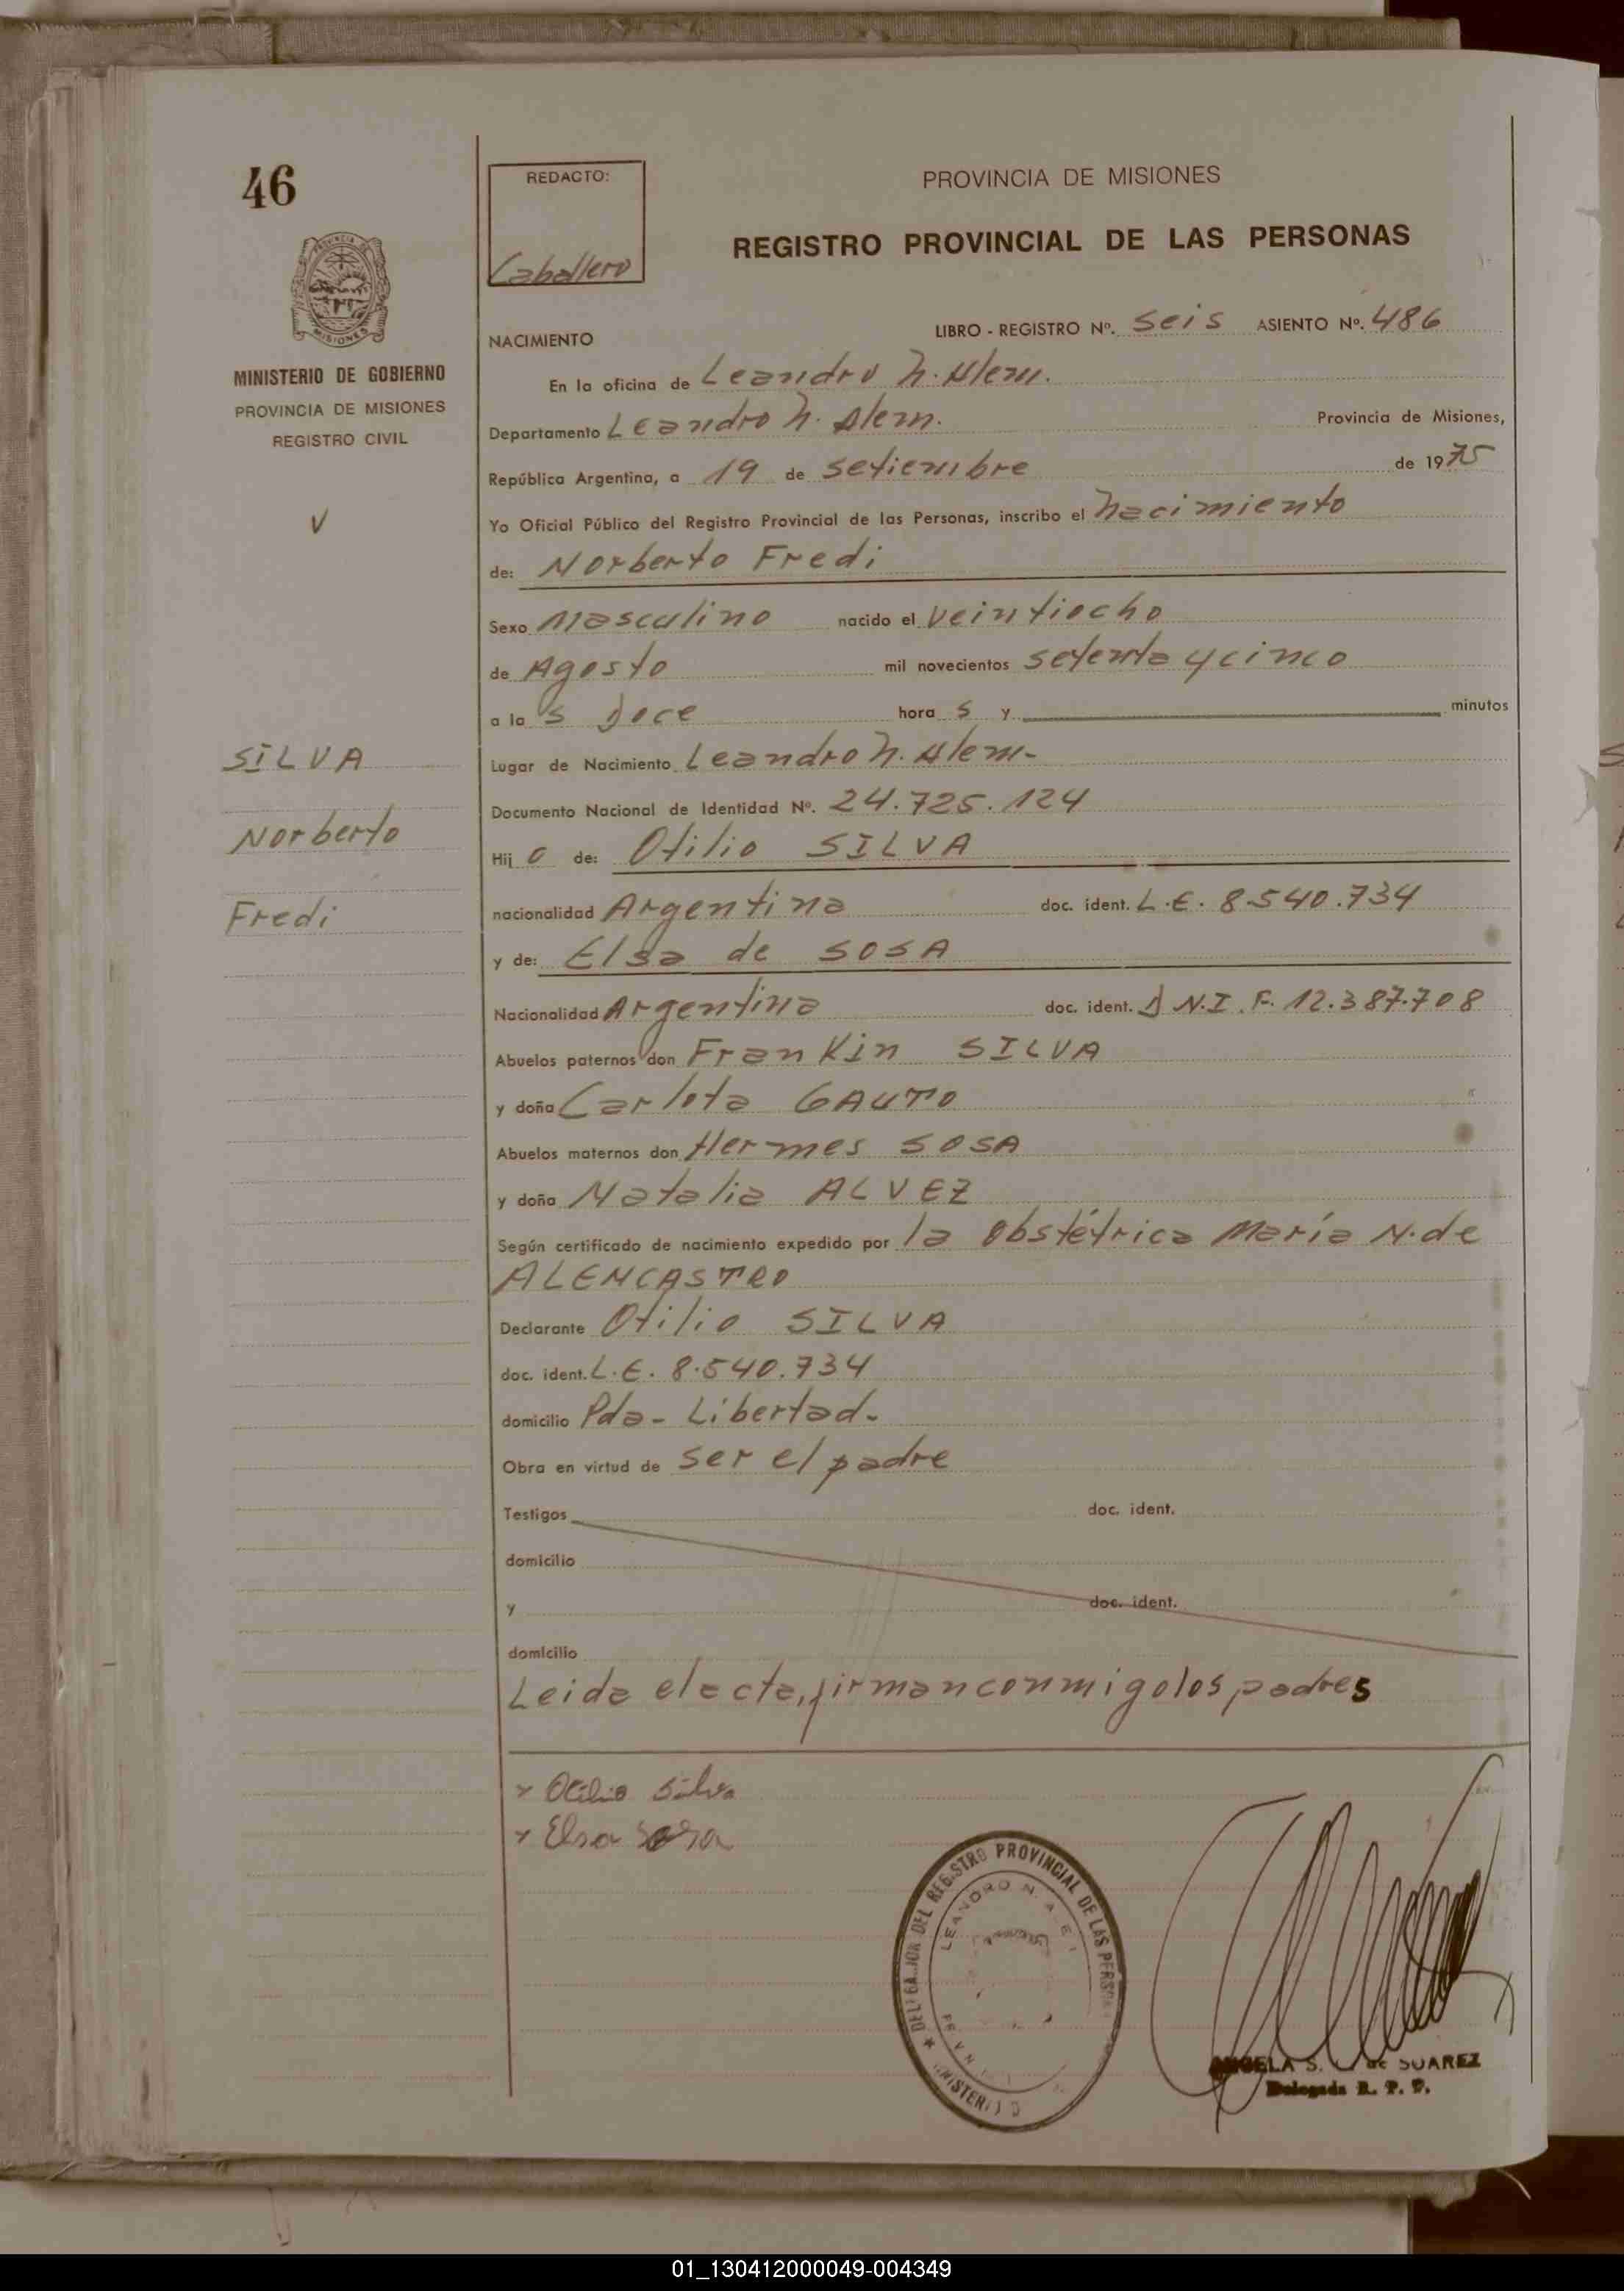 46
REDACTO:
Caballero
PROVINCIA DE MISIONES
REGISTRO PROVINCIAL DE LAS PERSONAS
PROVINCIA DE
MISIONES
MINISTERIO DE GOBIERNO
PROVINCIA DE MISIONES
REGISTRO CIVIL
NACIMIENTO
LIBRO - REGISTRO Nº. Seis ASIENTO Nº. 486
En la oficina de Leandro N. Alem.
Departamento Leandro N. Alem. Provincia de Misiones,
República Argentina, a 19 de setiembre de 1975
Yo Oficial Público del Registro Provincial de las Personas, inscribo el nacimiento
de: Norberto Fredi
Sexo Masculino nacido el veintiocho
de Agosto mil novecientos setenta y cinco
a la s Doce hora s y minutos
SILVA
Norberto
Fredi
Lugar de Nacimiento Leandro N. Alem-
Documento Nacional de Identidad Nº. 24.725.124
Hij o de: Otilio SILVA
nacionalidad Argentina doc. ident. L.E. 8.540.734
y de: Elsa de SOSA
Nacionalidad Argentina doc. ident. D N.I. F. 12.387.708
Abuelos paternos don Frankin SILVA
y doña Carlota GAUTO
Abuelos maternos don Hermes SOSA
y doña Natalia ALVEZ
Según certificado de nacimiento expedido por la Obstétrica María N. de
ALENCASTRO
Declarante Otilio SILVA
doc. ident. L.E. 8.540.734
domicilio Pda- Libertad-
Obra en virtud de ser el padre
Testigos doc. ident.
domicilio
y doc. ident.
domicilio
Leida el acta, firman conmigo los padres
x Otilio Silva
x Elsa Sosa
DEL REGISTRO PROVINCIAL DE LAS
LEANDRO N.
ANGELA S. de SUAREZ
Delegada R. P. P.
01_130412000049-004349